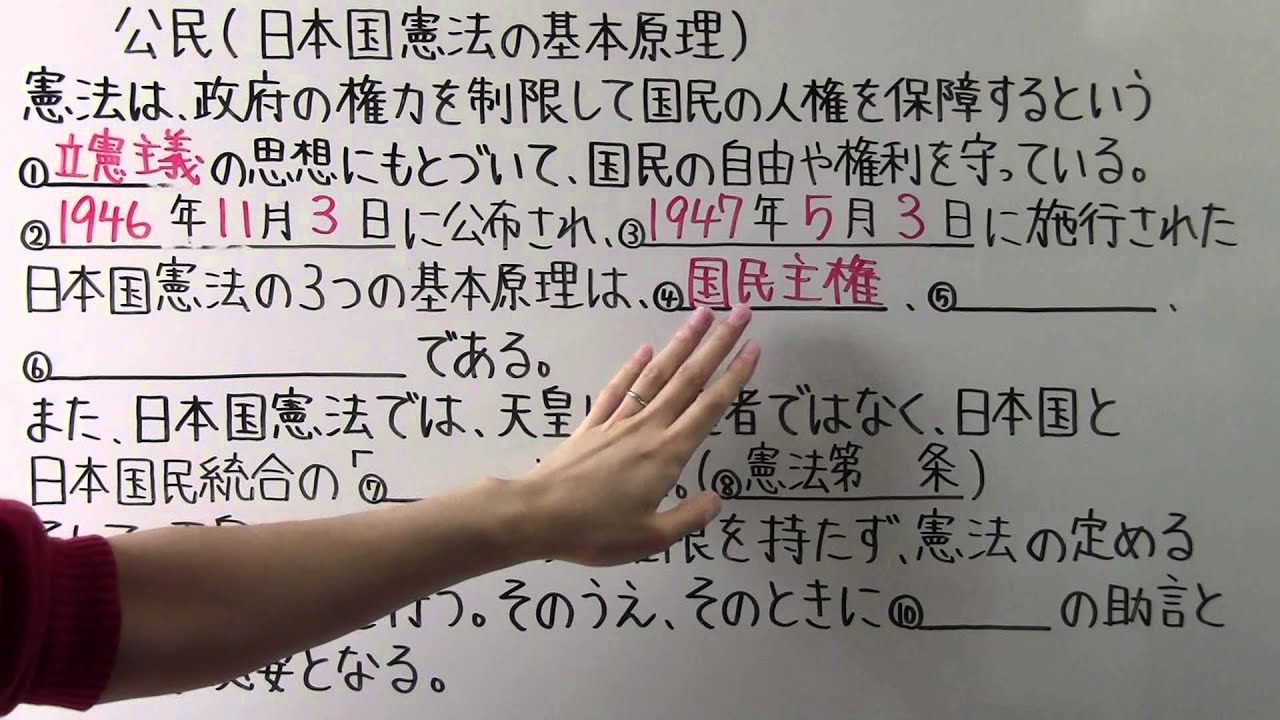 公民(日本国憲法の基本原理)
憲法は、政府の権力を制限して国民の人権を保障するという
①立憲主義の思想にもとづいて、国民の自由や権利を守っている。
②1946年11月3日に公布され、③1947年5月3日に施行された
日本国憲法の3つの基本原理は、④国民主権、⑤、
⑥である。
また、日本国憲法では、天皇 者ではなく、日本国と
日本国民統合の「⑦ 。(⑧憲法第 条)
限を持たず、憲法の定める
行う。そのうえ、そのときに⑩の助言と
となる。